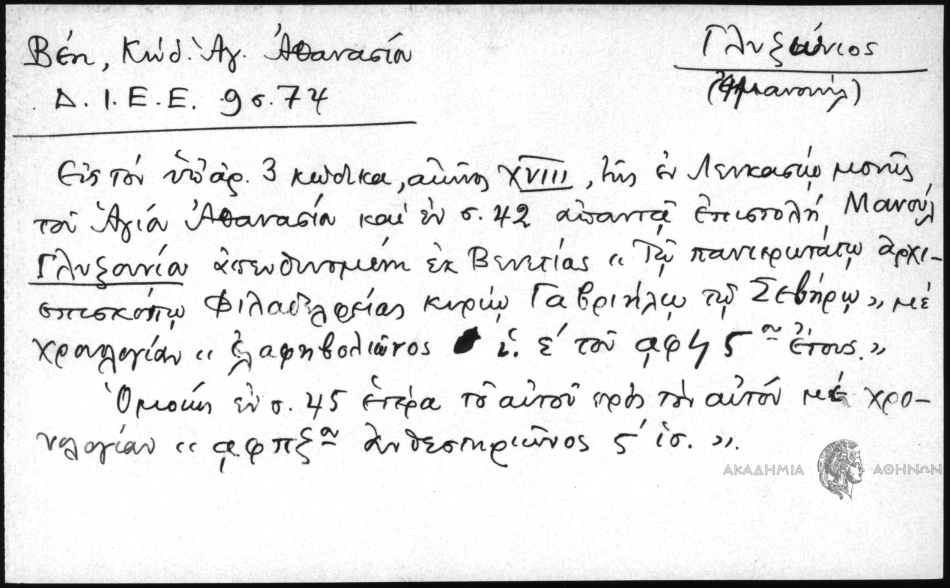 Βέη, Κώδ. Ἁγ. Ἀθανασίου
Δ. Ι. Ε. Ε. 9 σ. 74
Γλυζώνιος
(Ἐμμανουήλ)
Εἰς τὸν ὑπ' ἀρ. 3 κώδικα, αἰῶνος XVIII, τῆς ἐν Λευκασίῳ μονῆς
τοῦ Ἁγίου Ἀθανασίου καὶ ἐν σ. 42 ἀπαντᾷ ἐπιστολὴ Μανουὴλ
Γλυζουνίου ἀπευθυνομένη ἐκ Βενετίας « Τῷ πανιερωτάτῳ ἀρχι-
επισκόπῳ Φιλαδελφείας κυρίῳ Γαβριήλῳ τῷ Σεβήρῳ », μὲ
χρονολογίαν « ἐλαφηβολιῶνος ι. ε' τοῦ αφϞ5 ου ἔτους. »
Ὁμοίως ἐν σ. 45 ἑτέρα τοῦ αὐτοῦ πρὸς τὸν αὐτόν μὲ χρο-
νολογίαν « αφπξ ου Ἀνθεστηριῶνος ς' ἱσ. ».
ΑΚΑΔΗΜΙΑ ΑΘΗΝΩΝ